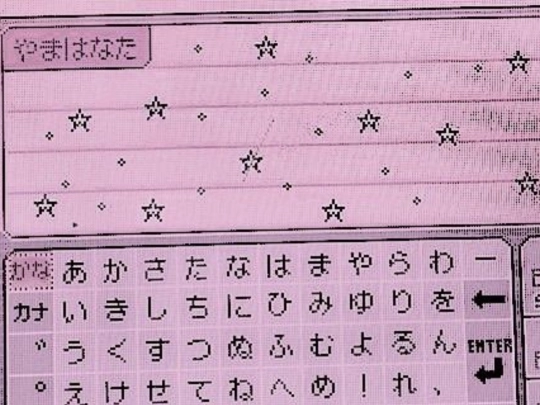 やまはなた
かな あ か さ た な は ま や ら わ ー
カナ い き し ち に ひ み ゆ り を ←
゛ う く す つ ぬ ふ む よ る ん ENTER
゜ え け せ て ね へ め ! れ 、